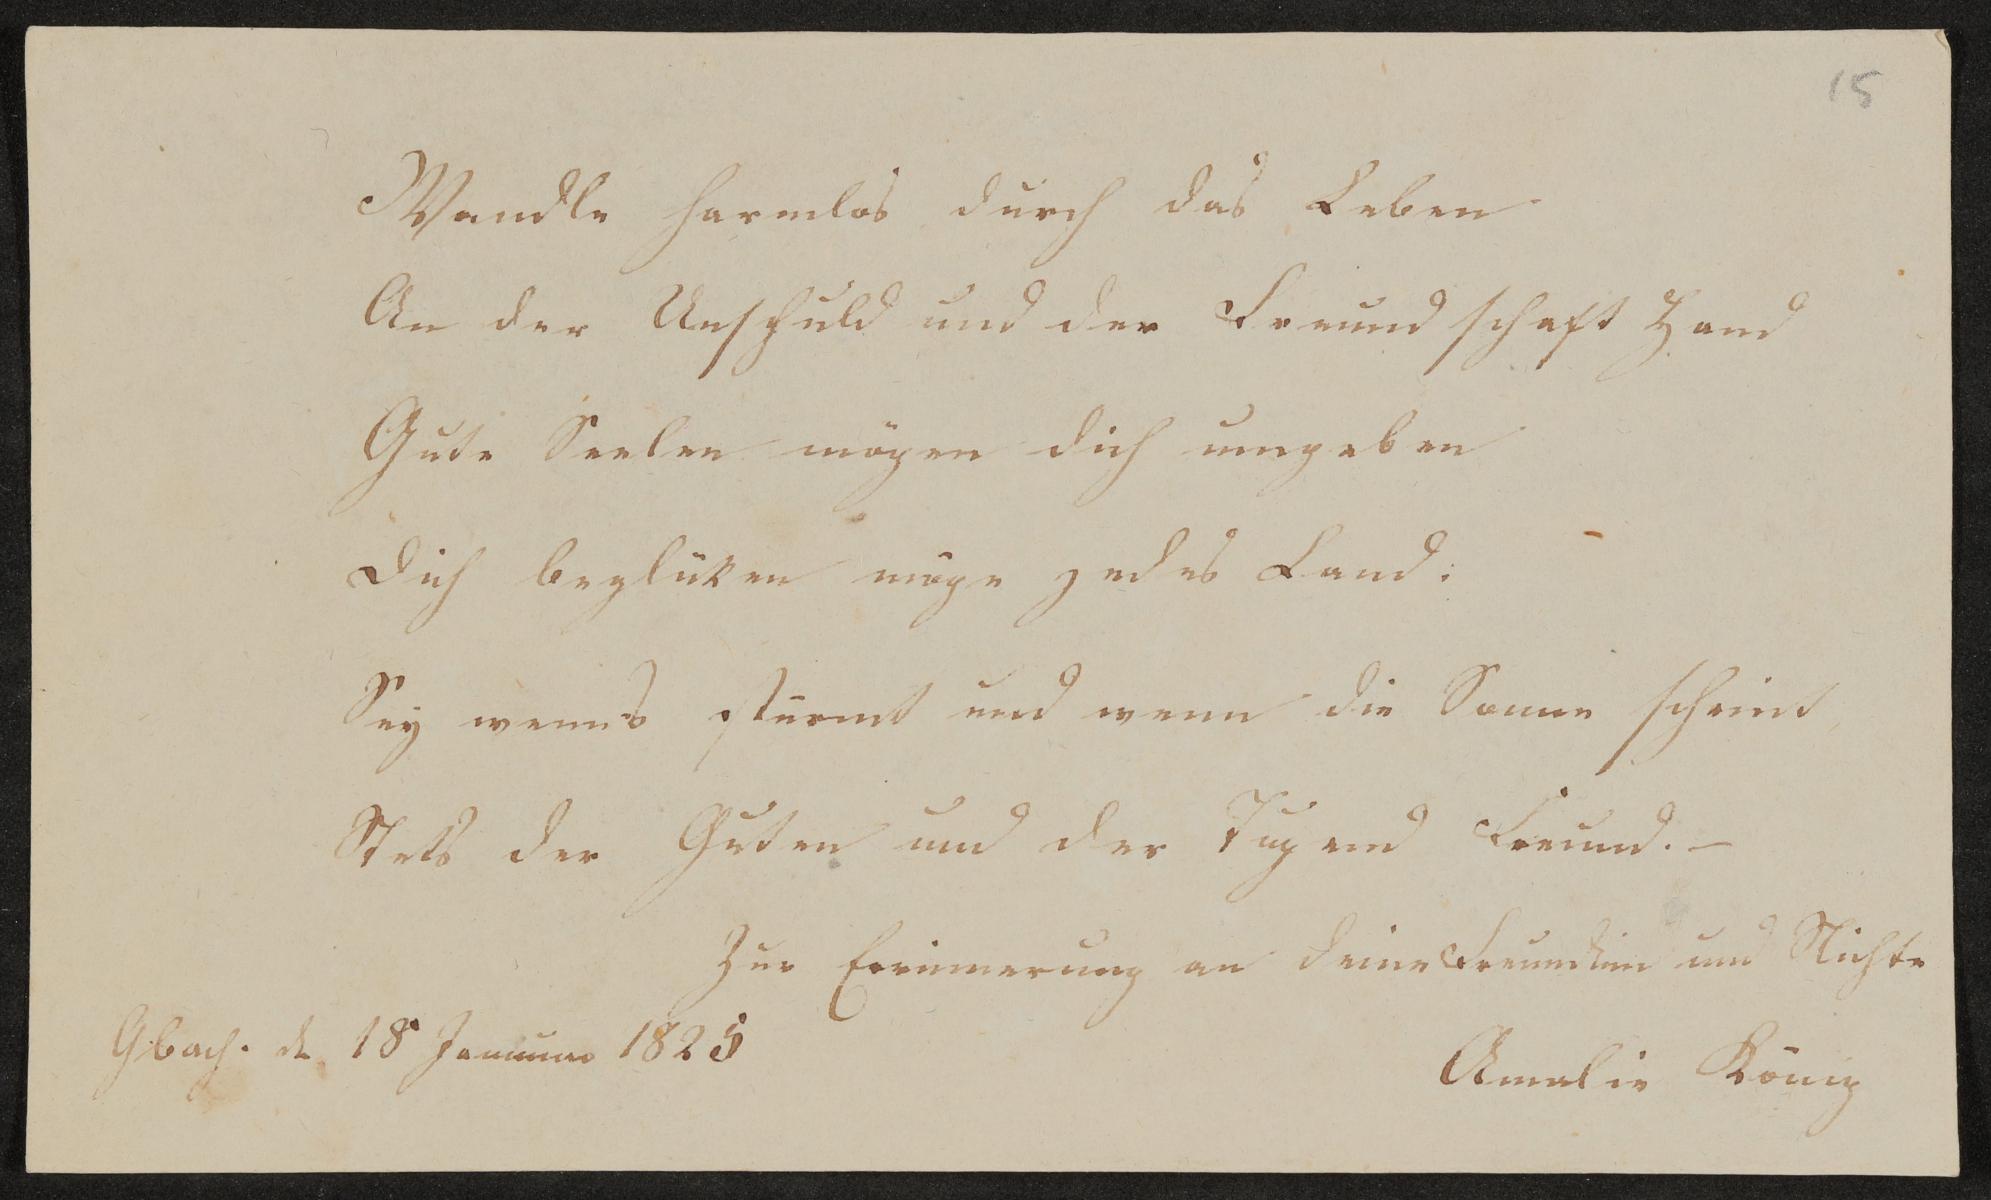 15
Wandle harmlos durch das Leben
An der Unschuld und der Freundschaft Hand
Gute Seelen mögen dich umgeben
Dich beglüken möge jedes Land.
Sey wenns stürmt und wenn die Sonne scheint,
Stets der Guten und der Tugend Freund. –
Zur Erinnerung an deine Freundinn und Nichte
Gbach. d. 18 Januar 1825
Amalie König